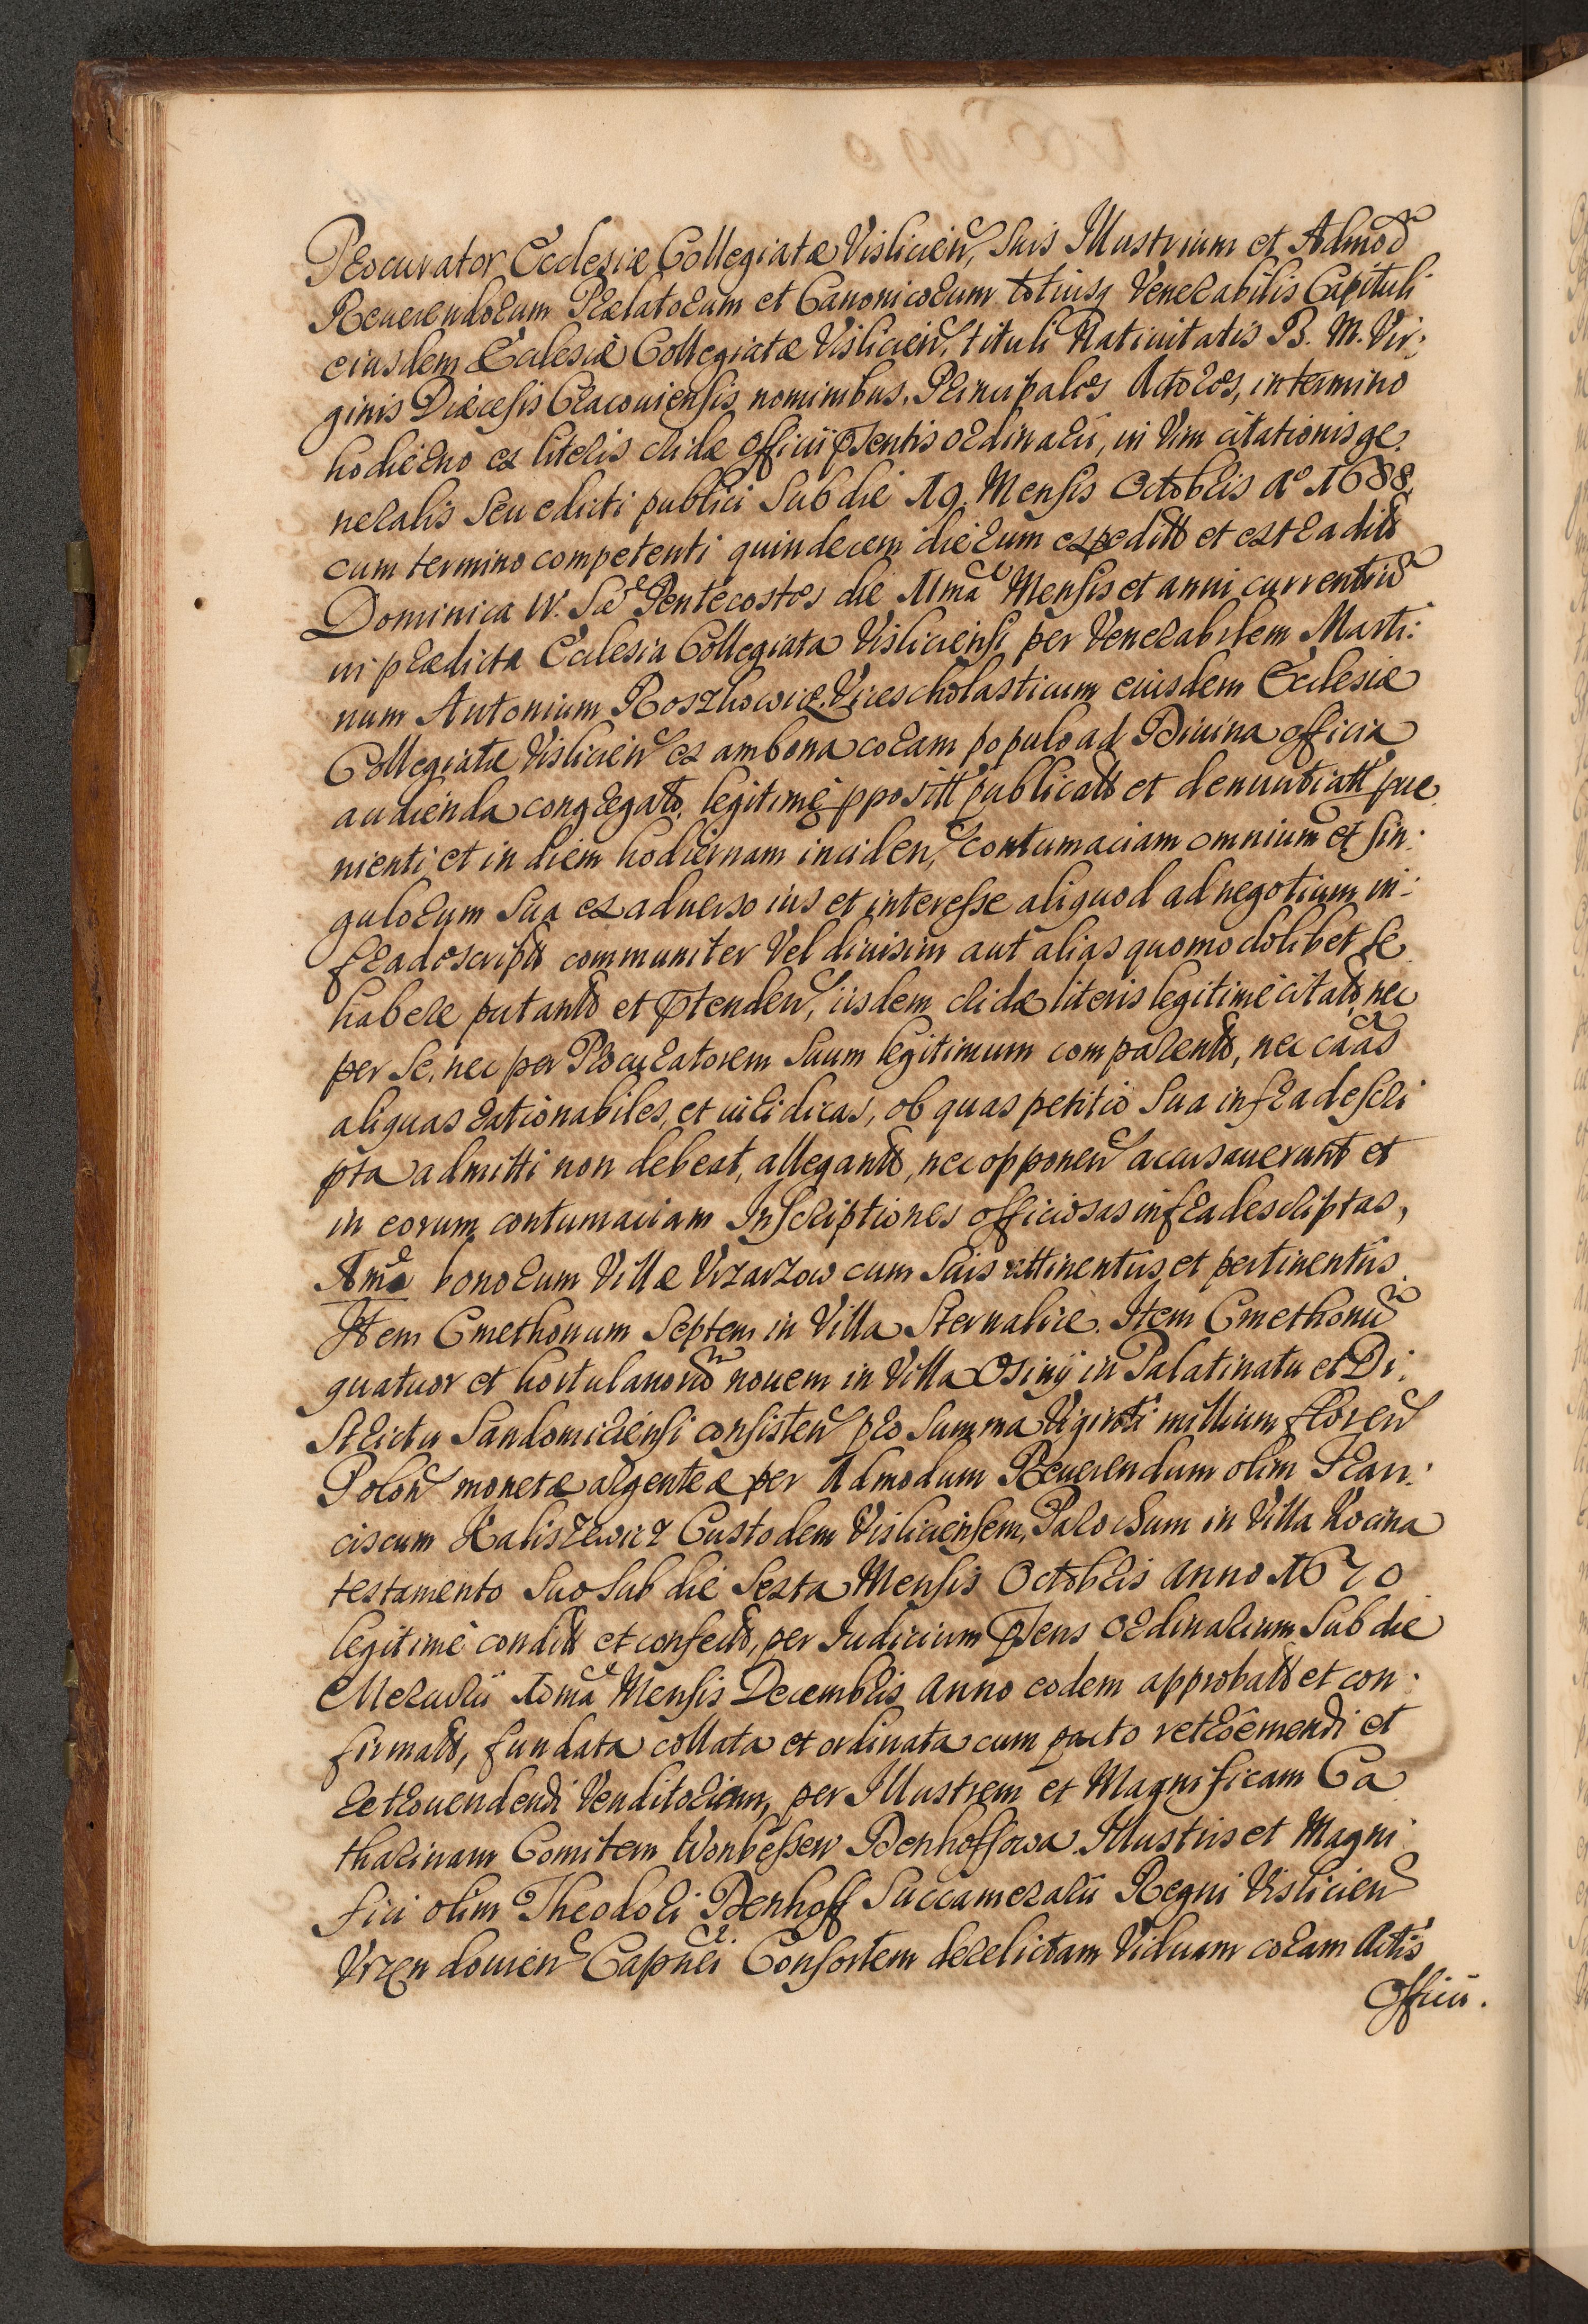 Procurator Ecclesiæ Collegiatæ Vislicień, suis Illustrium et Admod̃
Reuerendorum Prælatorum et Canonicorum totiusq Venerabilis Capituli
eiusdem Ecclesiæ Collegiatæ Vislicień, tituli Natiuitatis B. M. Vir:
ginis Diæcesis Cracouiensis nominibus, Principales Actores, in termino
hodierno ex literis cridæ officii p̃sentis ordinarii, in vim citationis ge:
neralis seu edicti publici sub die 19. Mensis Octobris Aº 1688
cum termino competenti quindecem dierum expedit̃ et extradit̃
Dominica IV. Sæ Pentecostes die 11mã Mensis et anni currentiũ
in prædicta Ecclesia Collegiata Visliciensi per Venerabilem Marti:
num Antonium Roszkowicz Vicescholasticum eiusdem Ecclesiæ
Collegiatæ Vislicień ex ambona coram populo ad Diuina officia
audienda congregato, legitimè ꝓposit̃ publicat̃ et denuntiat̃ pue
nienti et in diem hodiernam inciden̄, contumaciam omnium et sin:
gulorum sua ex aduerso ius et interesse aliquod ad negotium in:
fradescript̃ communiter vel diuisim aut alias quomodolibet se
habere putant̃ et p̃tenden̄, iisdem cridæ literis legitimè citat̃, nec
per se, nec per Procuratorem suum legitimum comparent̃, nec cãas
aliquas rationabiles, et iuridicas, ob quas petitio sua infradescri
pta admitti non debeat, allegant̃, nec opponen̄ accusauerunt et
in eorum contumaciam Inscriptiones officiosas infradescriptas,
1mã bonorum Villæ Vrzazow cum suis attinentiis et pertinentiis
Item Cmethonum septem in Villa Sternalice. Item Cmethonũ
quatuor et hortulanorũ nouem in Villa Osiny in Palatinatu et Di:
strictu Sandomiriensi consisten̄ pro summa viginti millium floren̄
Polon̄ monetæ argenteæ per Admodum Reuerendum olim Fran:
ciscum Kaliszewicz Custodem Visliciensem, Parochum in Villa Kocina
testamento suo sub die sexta Mensis Octobris anno 1670
legitimè condit̃ et confect̃, per Iudicium p̃sens ordinarium sub die
Mercurii 10mã Mensis Decembris anno eodem approbat̃ et con:
firmat̃, fundata collata et ordinata cum pacto retroemendi et
retrouendendi venditoriam, per Illustrem et Magnificam Ca
tharinam Comitem Wonbessen Denhoffowa Illustris et Magni
fici olim Theodori Denhoff Succamerarii Regni Vislicien̄
Vrzendouien̄ Capnei Consortem derelictam Viduam coram Actis
Officii.